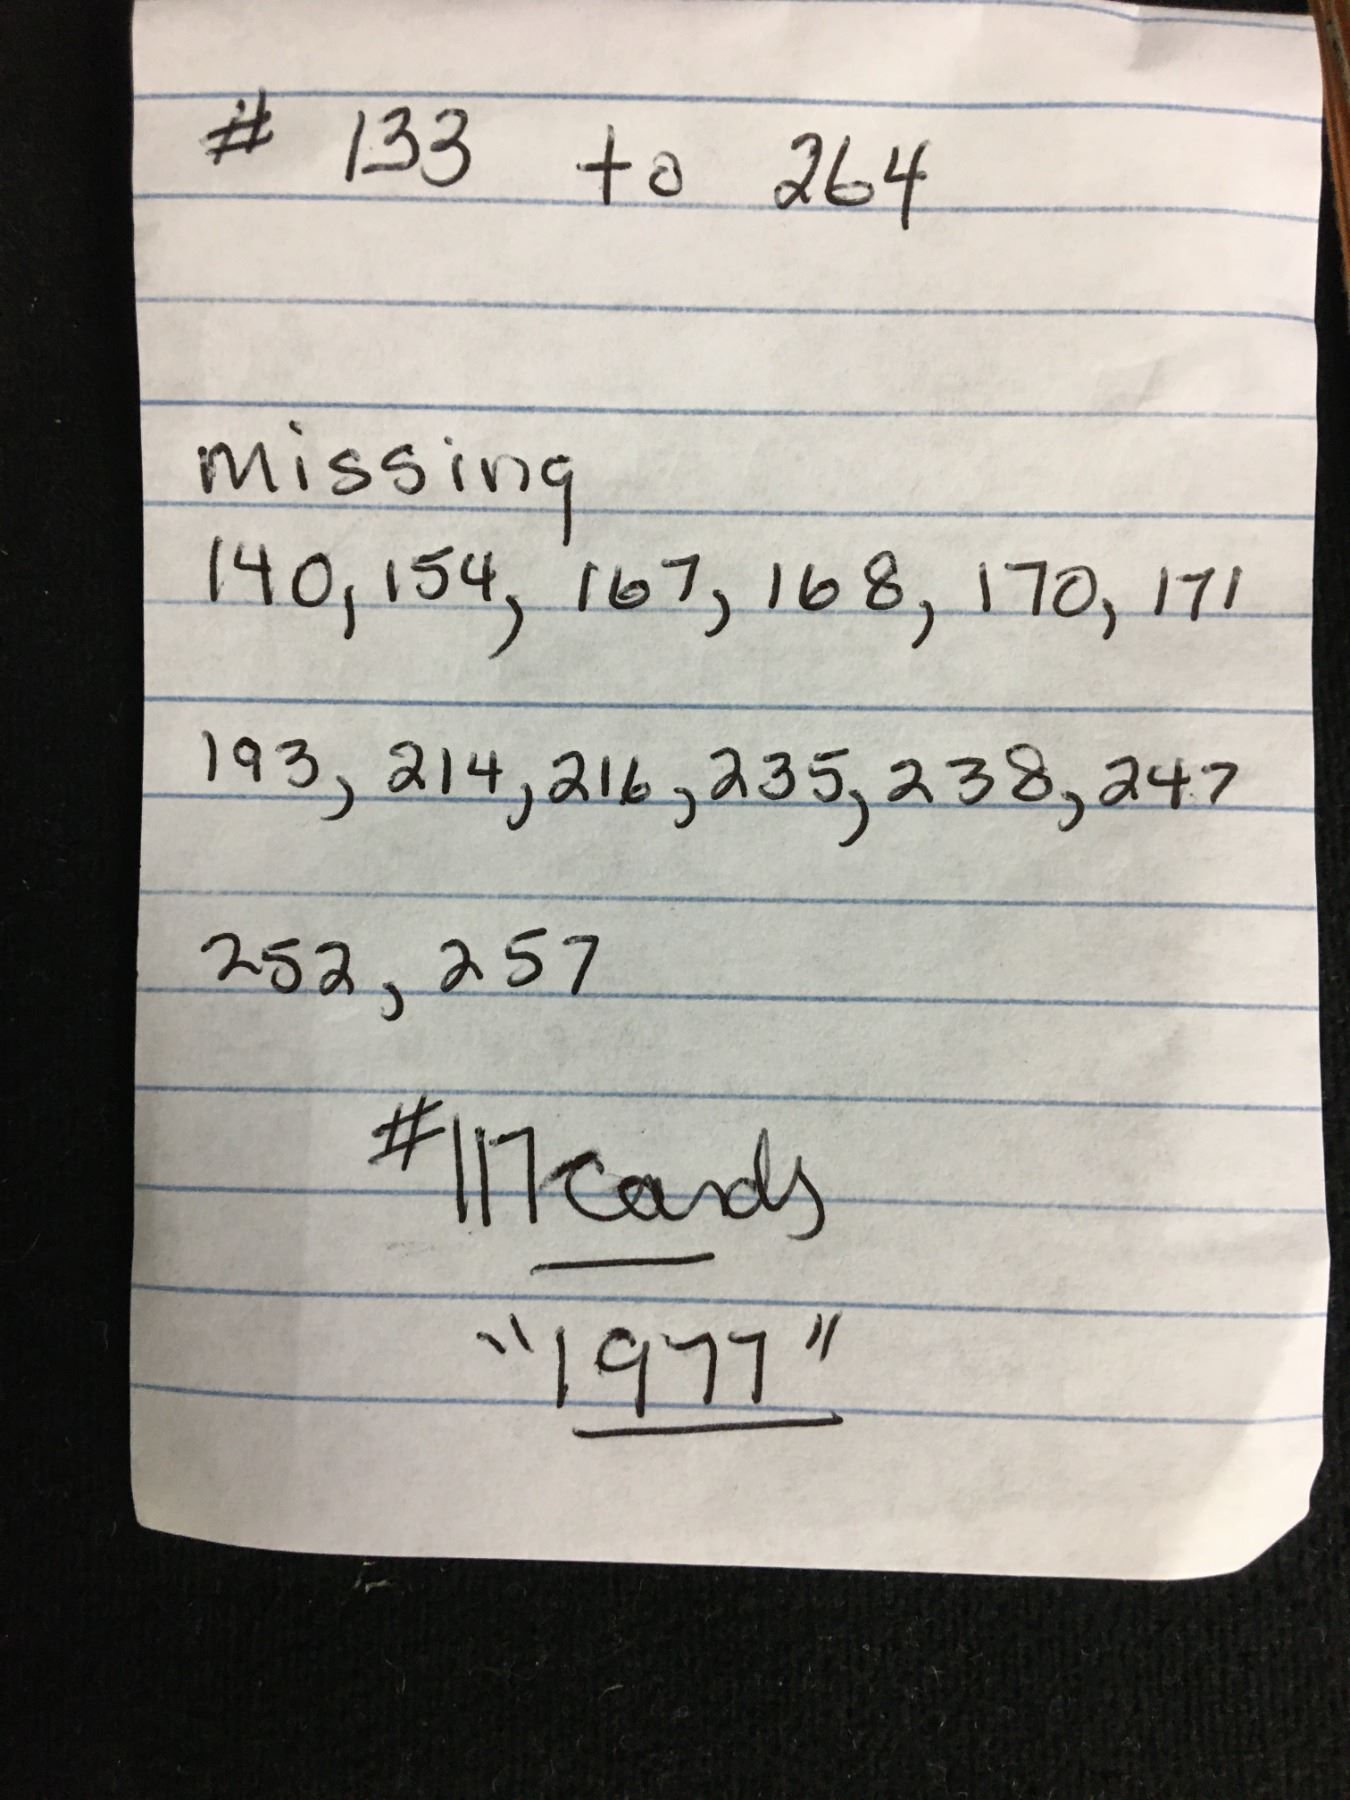 # 133 to 264
missing
140, 154, 167, 168, 170, 171
193, 214, 216, 235, 238, 247
252, 257
#117 cards
"1977"